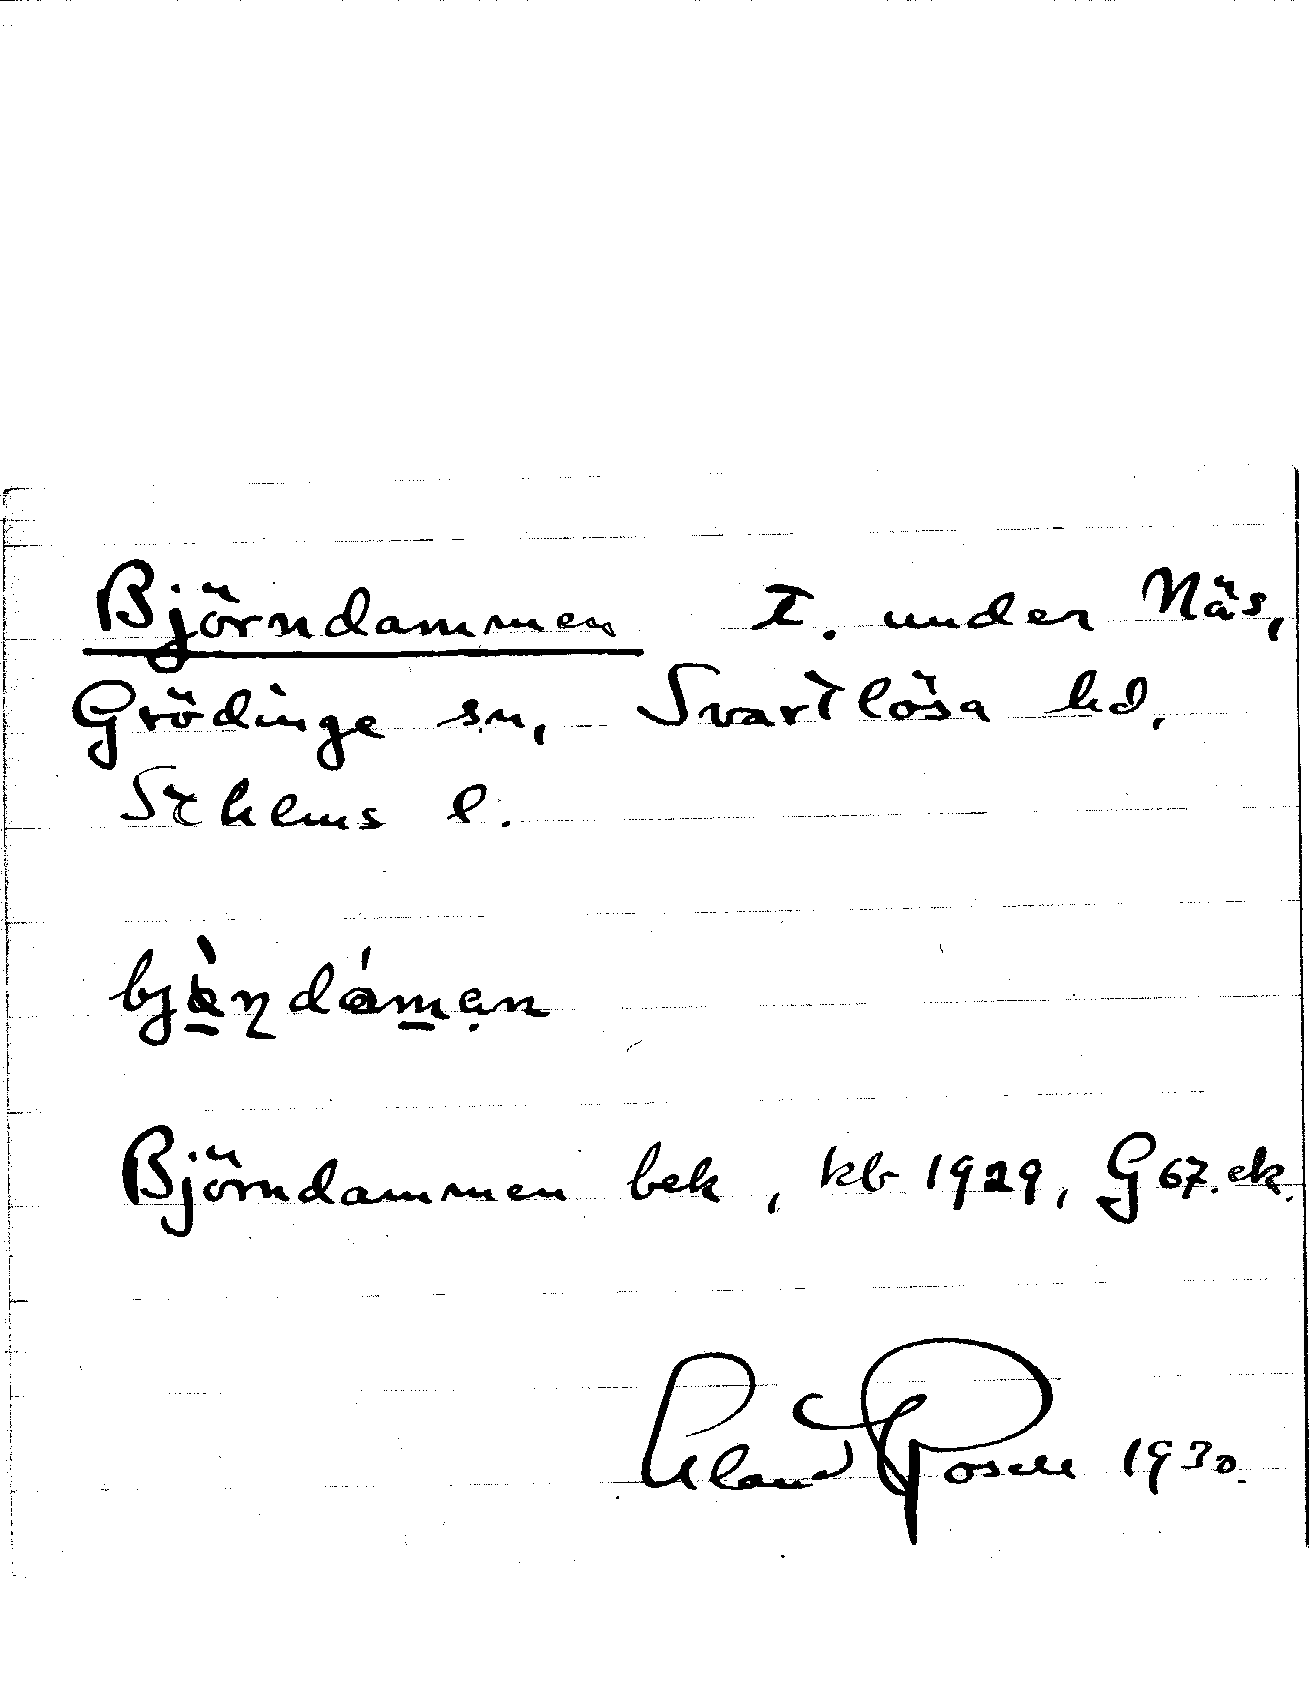 Björndammen t. under Näs,
Grödinge sn, Svartlösa hd,
Sthlms l.
Björndammen bek, kb 1929, G 67. ek.
1930.